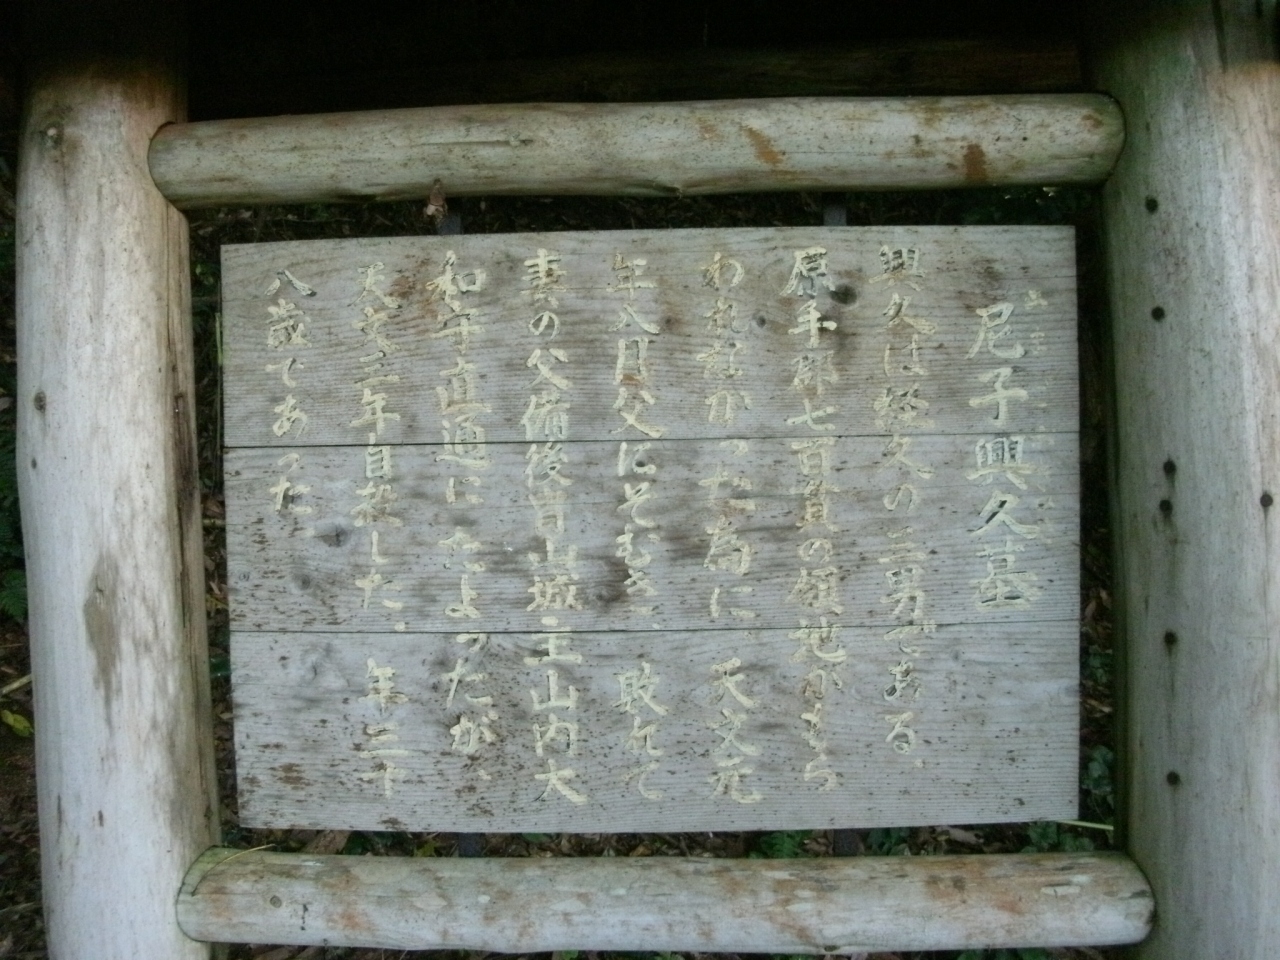 尼子興久墓
興久は経久の三男である、
原手郡七百貫の領地がもら
われなかった為に、天文元
年八月父にそむき、敗れて
妻の父備後甲山城主山内大
和守直通にたよったが、
天文三年自殺した、年三十
八歳であった、